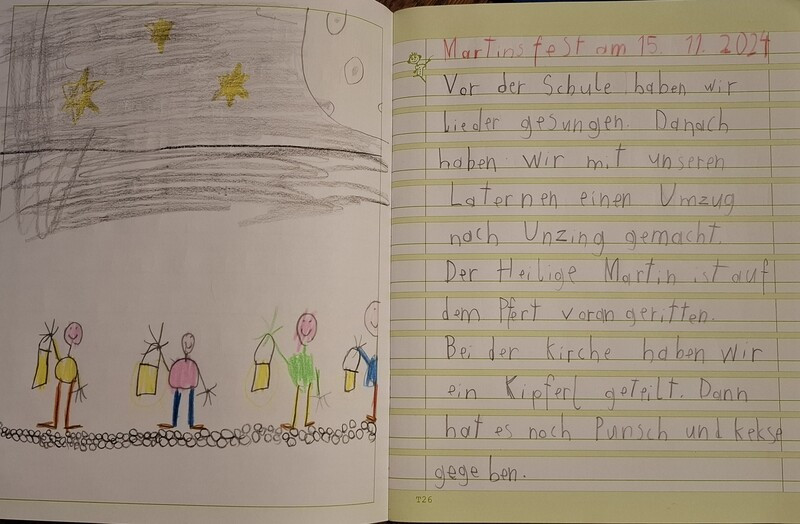 Martinsfest am 15. 11. 2024
Vor der Schule haben wir
Lieder gesungen. Danach
haben wir mit unseren
Laternen einen Umzug
nach Unzing gemacht.
Der Heilige Martin ist auf
dem Pfert voran geritten.
Bei der Kirche haben wir
ein Kipferl geteilt. Dann
hat es noch Punsch und kekse
gegeben.
T26